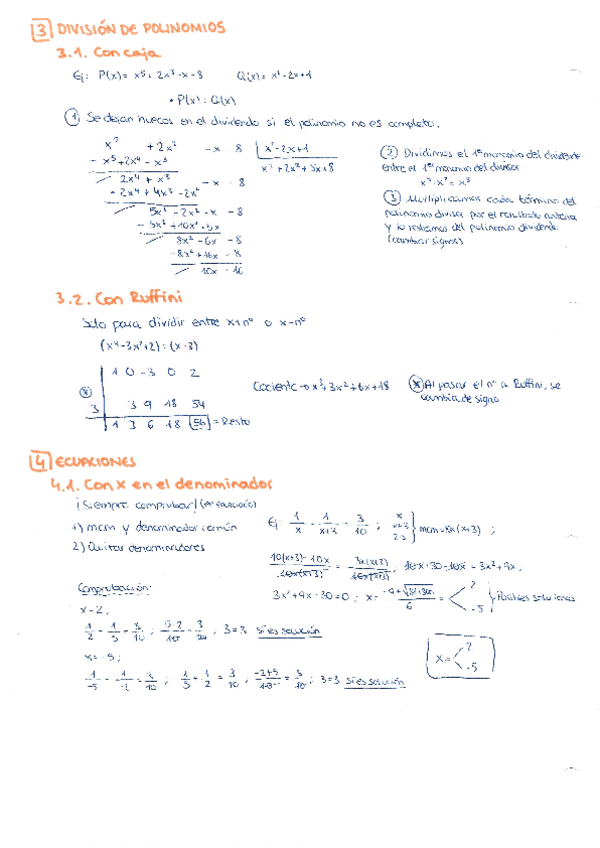 3 DIVISIÓN DE POLINOMIOS
3.1. Con caja
Ej: P(x) = x⁵ + 2x³ - x - 8 Q(x) = x² - 2x + 1
• P(x) : Q(x)
1 Se dejan huecos en el dividendo si el polinomio no es completo.
x⁵ + 2x³ - x - 8 | x² - 2x + 1
- x⁵ + 2x⁴ - x³ x³ + 2x² + 5x + 8
2x⁴ + x³ - x - 8
- 2x⁴ + 4x³ - 2x²
5x³ - 2x² - x - 8
- 5x³ + 10x² - 5x
8x² - 6x - 8
- 8x² + 16x - 8
10x - 16
2 Dividimos el 1er monomio del dividente
entre el 1er monomio del divisor
3 Multiplicamos cada término del
polinomio divisor por el resultado anterior
y lo restamos del polinomio dividendo
(cambiar signo)
3.2. Con Ruffini
Solo para dividir entre x+nº o x-nº
(x⁴-3x²+2) : (x-3)
1 0 -3 0 2
3 3 9 18 54
1 3 6 18 56 = Resto
Cociente → x³+3x²+6x+18
* Al pasar el nº a Ruffini, se
cambia de signo
4 ECUACIONES
4.1. Con X en el denominador
¡Siempre comprobar!
1) mcm y denominador común
2) Quitar denominadores
Ej: 1/x - 1/x+3 = 3/10 ;
10(x+3) - 10x / 10x(x+3) = 3x(x+3) / 10x(x+3) ; 10x+30-10x = 3x²+9x ;
3x²+9x-30=0 ; x= 2 -5 Posibles soluciones
Comprobación:
x=2 ;
1/2 - 1/5 = 3/10 ; 5-2/10 = 3/10 ; 3=3 si es solución
x=-5 ;
1/-5 - 1/-2 = 3/10 ; 1/5 + 1/2 = 3/10 ; -2+5/10 = 3/10 ; 3=3 si es solución
x= 2 -5